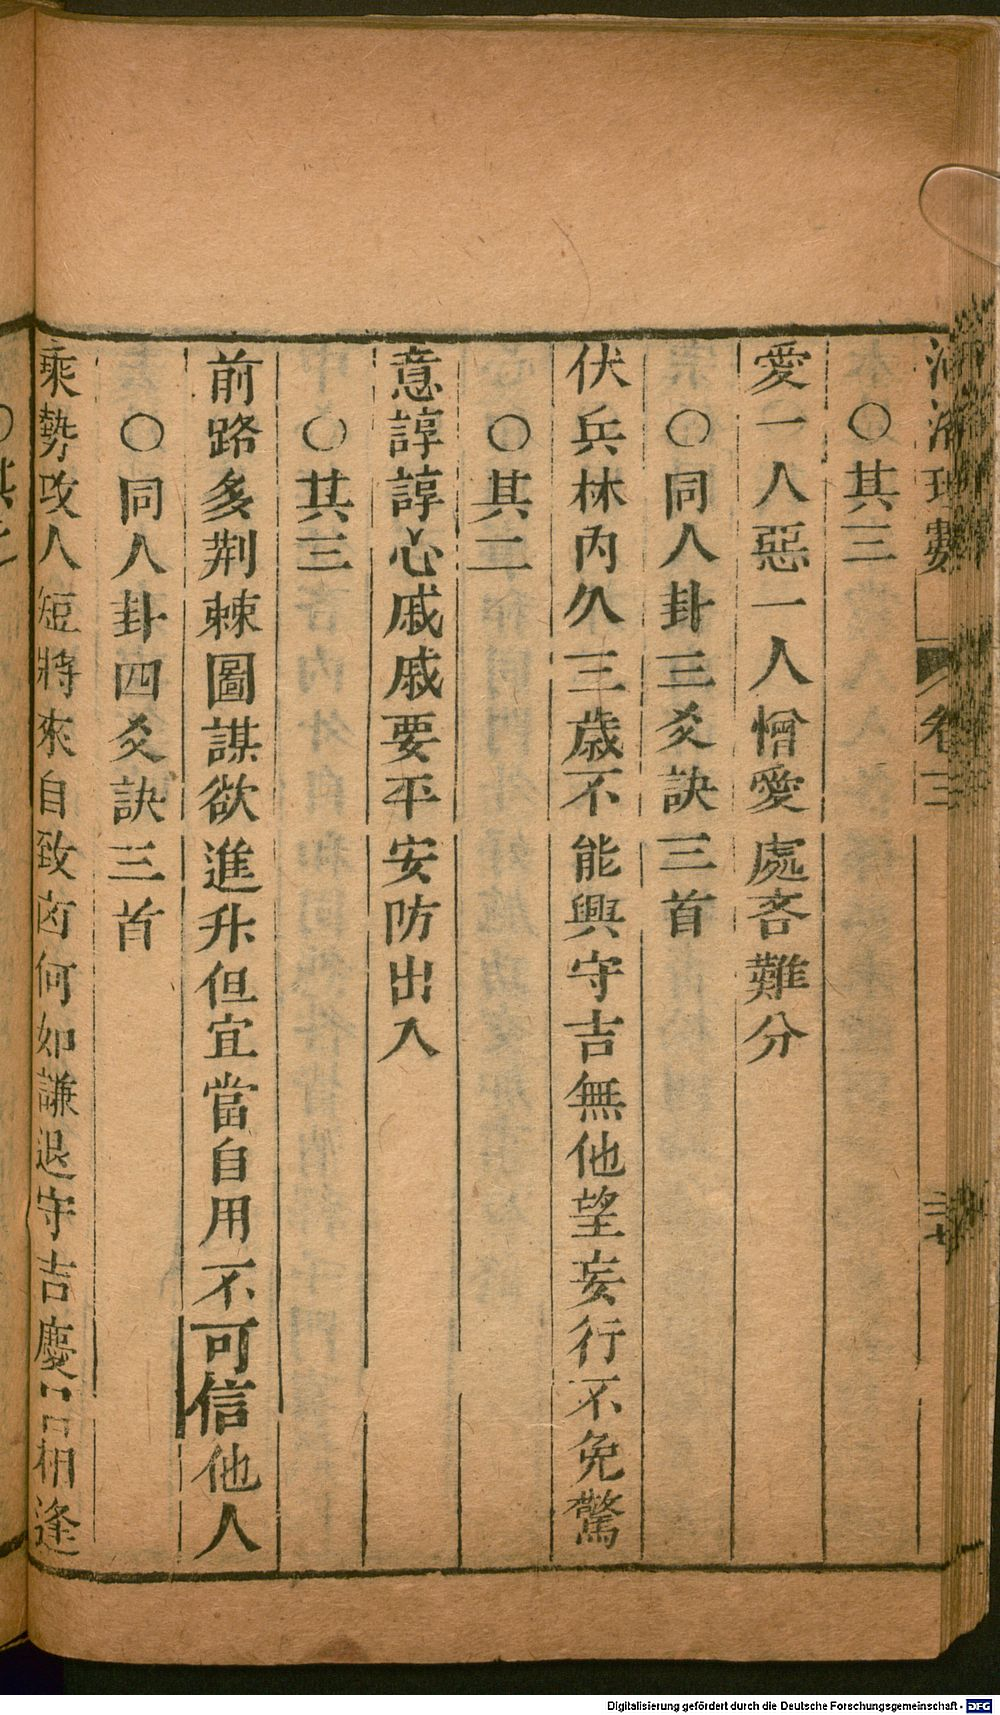 河洛理數 卷三 三七
○其三
愛一人惡一人憎愛處吝難分
○同人卦三爻訣三首
伏兵林內久三歲不能興守吉無他望妄行不免驚
○其二
意諄諄心戚戚要平安防出入
○其三
前路多荆棘圖謀欲進升但宜當自用不可信他人
○同人卦四爻訣三首
乘勢攻人短將來自致凶何如謙退守吉慶相逢
○其二
Digitalisierung gefördert durch die Deutsche Forschungsgemeinschaft - DFG